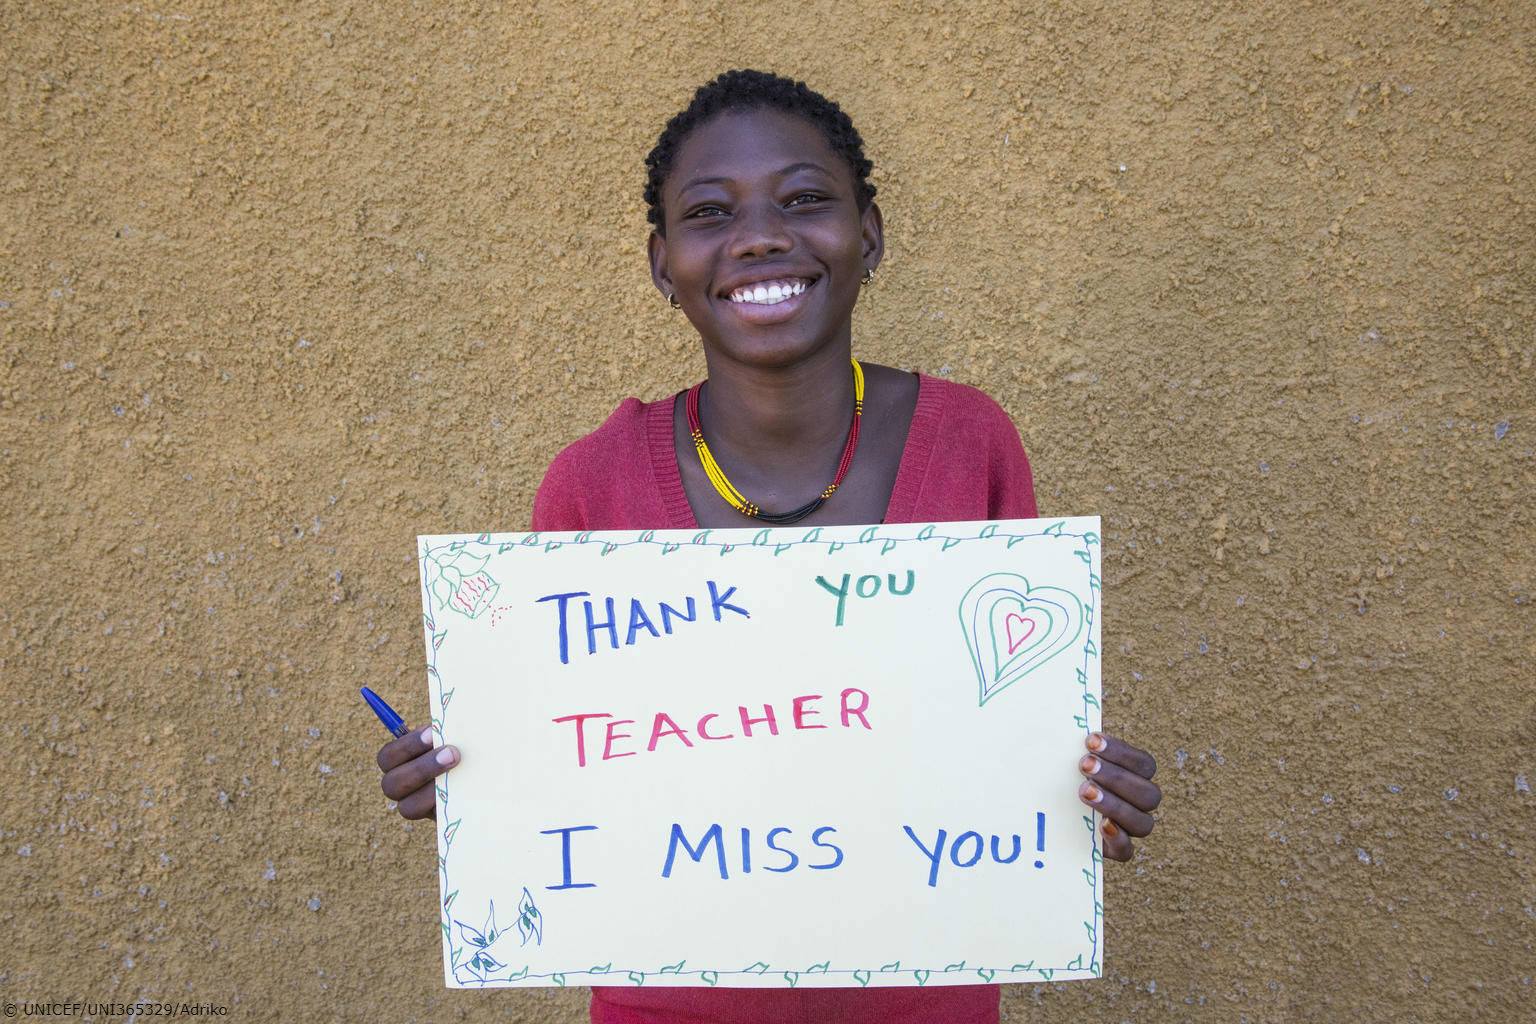 THANK YOU
TEACHER
I MISS YOU!
© UNICEF/UNI365329/Adriko